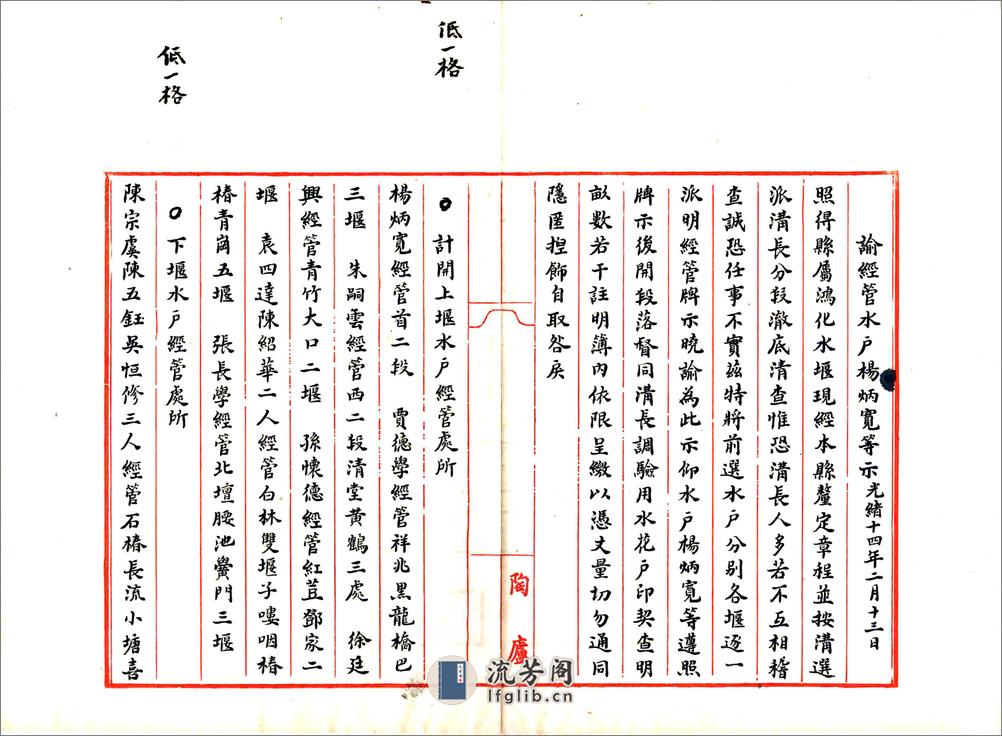 諭經管水戶楊炳寬等示光緒十四年二月十三日
照得縣屬鴻化水堰現經本縣釐定章程並按溝選
派溝長分段澈底清查惟恐溝長人多若不互相稽
查誠恐任事不實茲特將前選水戶分別各堰逐一
派明經管牌示曉諭為此示仰水戶楊炳寬等遵照
牌示後開段落督同溝長調驗用水花戶印契查明
畝數若干註明簿內依限呈繳以憑丈量切勿通同
隱匿捏飾自取咎戾
陶廬
低一格
計開上堰水戶經管處所
楊炳寬經管首二段 賈德學經管祥兆黑龍橋巴
三堰 朱嗣雲經管西二段清堂黃鶴三處 徐廷
興經管青竹大口二堰 孫懷德經管紅荳鄧家二
堰 袁四達陳紹華二人經管白林雙堰子嘍咽椿
椿青崗五堰 張長學經管北壇腰池黌門三堰
低一格
下堰水戶經管處所
陳宗虞陳五鈺吳恒修三人經管石椿長流小塘喜
流芳阁
lfglib.cn